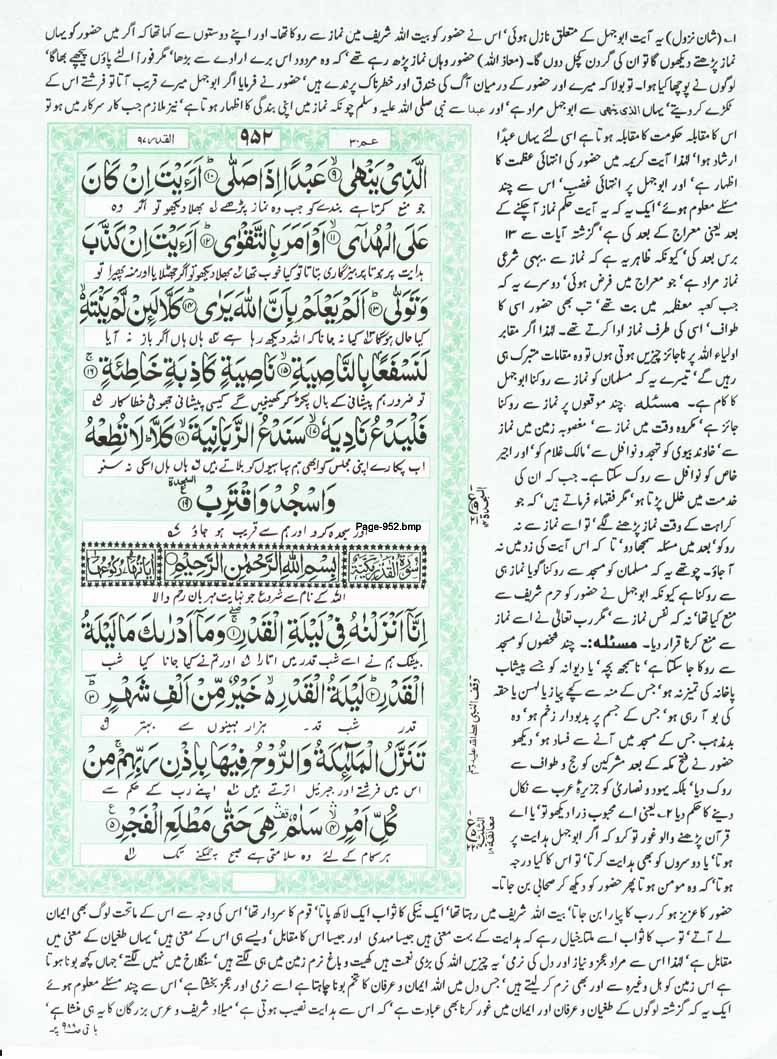 ۱؎ (شان نزول) یہ آیت ابوجہل کے متعلق نازل ہوئی' اس نے حضور کو بیت اللہ شریف میں نماز سے روکا تھا۔ اور اپنے دوستوں سے کہا تھا کہ اگر میں حضور کو یہاں
نماز پڑھتے دیکھوں گا تو ان کی گردن کچل دوں گا۔ (معاذ اللہ) حضور وہاں نماز پڑھ رہے تھے' کہ وہ مردود اس برے ارادے سے بڑھا' مگر فوراً الٹے پاؤں پیچھے بھاگا'
لوگوں نے پوچھا کیا ہوا۔ تو بولا کہ میرے اور حضور کے درمیان آگ کی خندق اور خطرناک پرندے ہیں' حضور نے فرمایا اگر ابوجہل میرے قریب آتا تو فرشتے اس کے
ٹکڑے کر دیتے' یہاں الذی ینھی سے ابوجہل مراد ہے' اور عبدا سے نبی صلی اللہ علیہ وسلم چونکہ نماز میں اپنی بندگی کا اظہار ہوتا ہے' نیز ملازم جب کار سرکار میں ہو تو
اس کا مقابلہ حکومت کا مقابلہ ہوتا ہے اسی لئے یہاں عبدًا
ارشاد ہوا' لہٰذا آیت کریمہ میں حضور کی انتہائی عظمت کا
اظہار ہے' اور ابوجہل پر انتہائی غضب' اس سے چند
مسئلے معلوم ہوئے' ایک یہ کہ یہ آیت حکم نماز آ چکنے کے
بعد یعنی معراج کے بعد کی ہے' گزشتہ آیات سے ۱۳
برس بعد کی' کیونکہ ظاہر یہ ہے کہ نماز سے یہی شرعی
نماز مراد ہے' جو معراج میں فرض ہوئی' دوسرے یہ کہ
جب کعبہ معظمہ میں بت تھے' تب بھی حضور اسی کا
طواف' اسی کی طرف نماز ادا کرتے تھے۔ لہٰذا اگر مقابر
اولیاء اللہ پر ناجائز چیزیں ہوتی ہوں تو وہ مقامات متبرک ہی
رہیں گے' تیسرے یہ کہ مسلمان کو نماز سے روکنا ابوجہل
کا کام ہے۔ مسئلہ چند موقعوں پر نماز سے روکنا
جائز ہے' مکروہ وقت میں نماز سے' مغصوبہ زمین میں نماز
سے' خاوند بیوی کو تہجد و نوافل سے' مالک غلام کو' اور اجیر
خاص کو نوافل سے روک سکتا ہے۔ جب کہ ان کی
خدمت میں خلل پڑتا ہو' مگر فقہاء فرماتے ہیں' کہ جو
کراہت کے وقت نماز پڑھنے لگے' تو اسے نماز سے نہ
روکو' بعد میں مسئلہ سمجھا دو' تا کہ اس آیت کی زد میں نہ
آ جاؤ۔ چوتھے یہ کہ مسلمان کو مسجد سے روکنا گویا نماز ہی
سے روکنا ہے کیونکہ ابوجہل نے حضور کو حرم شریف سے
منع کیا تھا' نہ کہ نفس نماز سے' مگر رب تعالیٰ نے اسے نماز
سے منع کرنا قرار دیا۔ مسئلہ:۔ چند شخصوں کو مسجد
سے روکا جا سکتا ہے' ناسمجھ بچہ' یا دیوانہ کو جسے پیشاب
پاخانہ کی تمیز نہ ہو' جس کے منہ سے کچے پیاز یا لہسن یا حقہ
کی بو آ رہی ہو' جس کے جسم پر بدبودار زخم ہو' وہ
بدمذہب جس کے مسجد میں آنے سے فساد ہو' دیکھو
حضور نے فتح مکہ کے بعد مشرکین کو حج و طواف سے
روک دیا' بلکہ یہود و نصاریٰ کو جزیرۂ عرب سے نکال
دینے کا حکم دیا ۲؎ یعنی اے محبوب ذرا دیکھو تو' یا اے
قرآن پڑھنے والو غور تو کرو کہ اگر ابوجہل ہدایت پر
ہوتا' یا دوسروں کو بھی ہدایت کرتا' تو اس کا کیا درجہ
ہوتا' کہ وہ مومن ہوتا پھر حضور کو دیکھ کر صحابی بن جاتا۔
عمّ ۳۰
۹۵۲
القدر ۹۷
الَّذِیْ یَنْهٰی ۹ عَبْدًا اِذَا صَلّٰی ۱۰ اَرَءَیْتَ اِنْ كَانَ
جو منع کرتا ہے بندے کو جب وہ نماز پڑھے بھلا دیکھو تو اگر وہ
عَلَی الْهُدٰۤی ۱۱ اَوْ اَمَرَ بِالتَّقْوٰی ۱۲ اَرَءَیْتَ اِنْ كَذَّبَ
ہدایت پر ہوتا یا پرہیزگاری بتاتا تو کیا خوب تھا بھلا دیکھو تو اگر جھٹلایا اور منہ پھیرا تو
وَتَوَلّٰی ۱۳ اَلَمْ یَعْلَمْ بِاَنَّ اللّٰهَ یَرٰی ۱۴ كَلَّا لَىِٕنْ لَّمْ یَنْتَهِ
کیا حال ہوگا کیا نہ جانا کہ اللہ دیکھ رہا ہے ہاں ہاں اگر باز نہ آیا
لَنَسْفَعًۢا بِالنَّاصِیَةِ ۱۵ نَاصِیَةٍ كَاذِبَةٍ خَاطِئَةٍ ۱۶
تو ضرور ہم پیشانی کے بال پکڑ کر کھینچیں گے کیسی پیشانی جھوٹی خطاکار
فَلْیَدْعُ نَادِیَهٗ ۱۷ سَنَدْعُ الزَّبَانِیَةَ ۱۸ كَلَّا لَا تُطِعْهُ
اب پکارے اپنی مجلس کو ابھی ہم سپاہیوں کو بلاتے ہیں ہاں ہاں اسکی نہ سنو
وَاسْجُدْ وَاقْتَرِبْ ۱۹ السجدة
اور سجدہ کرو اور ہم سے قریب ہو جاؤ
Page-952.bmp
سُوْرَةُ الْقَدْرِ مَكِّیَّةٌ
بِسْمِ اللّٰهِ الرَّحْمٰنِ الرَّحِیْمِ
اللہ کے نام سے شروع جو نہایت مہربان رحم والا
اِنَّاۤ اَنْزَلْنٰهُ فِیْ لَیْلَةِ الْقَدْرِ ۱ وَمَاۤ اَدْرٰىكَ مَا لَیْلَةُ
بیشک ہم نے اسے شب قدر میں اتارا اور تم نے کیا جانا کیا شب
الْقَدْرِ ۲ لَیْلَةُ الْقَدْرِ خَیْرٌ مِّنْ اَلْفِ شَهْرٍ ۳
قدر شب قدر ہزار مہینوں سے بہتر
تَنَزَّلُ الْمَلٰٓىِٕكَةُ وَالرُّوْحُ فِیْهَا بِاِذْنِ رَبِّهِمْ مِّنْ
اس میں فرشتے اور جبرئیل اترتے ہیں اپنے رب کے حکم سے
كُلِّ اَمْرٍ ۴ سَلٰمٌ هِیَ حَتّٰی مَطْلَعِ الْفَجْرِ ۵
ہر کام کے لئے وہ سلامتی ہے صبح چمکنے تک
حضور کا عزیز ہو کر رب کا پیارا بن جاتا' بیت اللہ شریف میں رہتا تھا' ایک نیکی کا ثواب ایک لاکھ پاتا' قوم کا سردار تھا' اس کی وجہ سے اس کے ماتحت لوگ بھی ایمان
لے آتے' تو سب کا ثواب اسے ملتا خیال رہے کہ ہدایت کے بہت معنی ہیں جیسا مہدی اور جیسا اس کا مقابل' ویسے ہی اس کے معنی ہیں' یہاں طغیان کے معنی میں
مقابل ہے' لہٰذا اس سے مراد عجز و نیاز اور دل کی نرمی' یہ چیزیں اللہ کی بڑی نعمت ہیں کھیت و باغ نرم زمین میں ہی لگتے ہیں' سنگلاخ میں نہیں لگتے' جہاں کچھ بونا ہوتا
ہے اس زمین کو ہل وغیرہ سے اور بھی نرم کر لیتے ہیں' جس دل میں اللہ ایمان و عرفان کا تخم بونا چاہتا ہے اسے نرمی اور عجز بخشتا ہے' اس سے چند مسئلے معلوم ہوئے
ایک یہ کہ گزشتہ لوگوں کے طغیان و عرفان اور ایمان میں غور کرنا بھی عبادت ہے' کہ اس سے ہدایت نصیب ہوتی ہے' میلاد شریف و عرس بزرگان کا یہ ہی منشا ہے'
باقی صفحہ ۹۸۸ پر